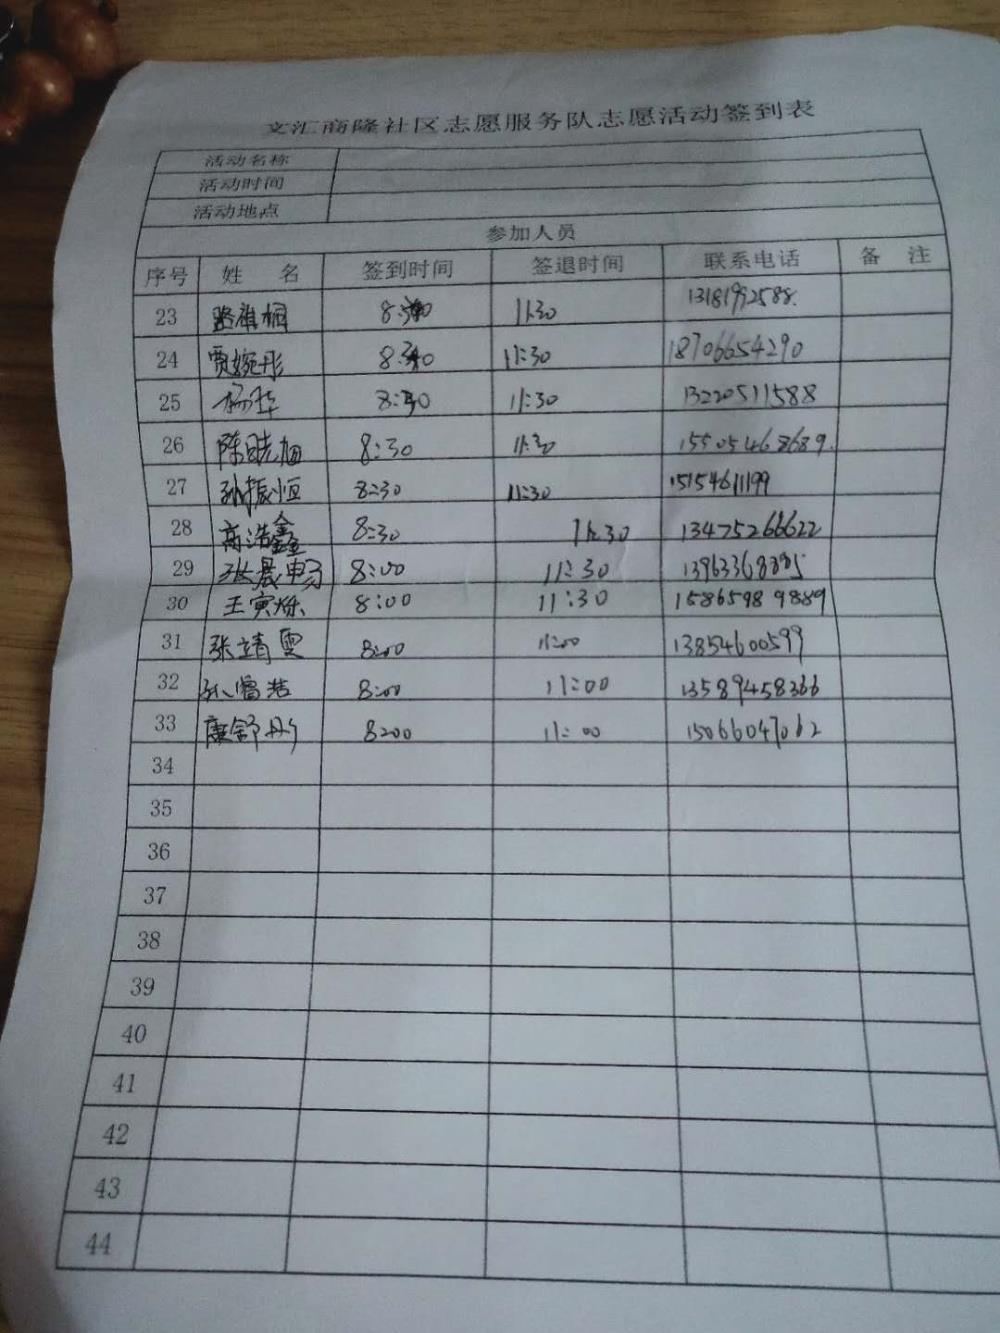 文汇商隆社区志愿服务队志愿活动签到表
活动名称
活动时间
活动地点
参加人员
序号 姓 名 签到时间 签退时间 联系电话 备 注
23 路雅桐 11:30 13181992588.
24 贾婉彤 11:30 18706654290
25 杨华 11:30 13220511588
26 陈晓旭 8:30 11:30 15505468689.
27 孙振恒 8:30 11:30 15154611199
28 高浩鑫 8:30 11:30 13475266622
29 张晨畅 8:00 11:30
30 王寅烁 8:00 11:30 15865989889
31 张靖雯 8:00 11:00 13854600599
32 8:00 11:00 13589458366
33 康舒彤 8:00 11:00 15066047062
34
35
36
37
38
39
40
41
42
43
44